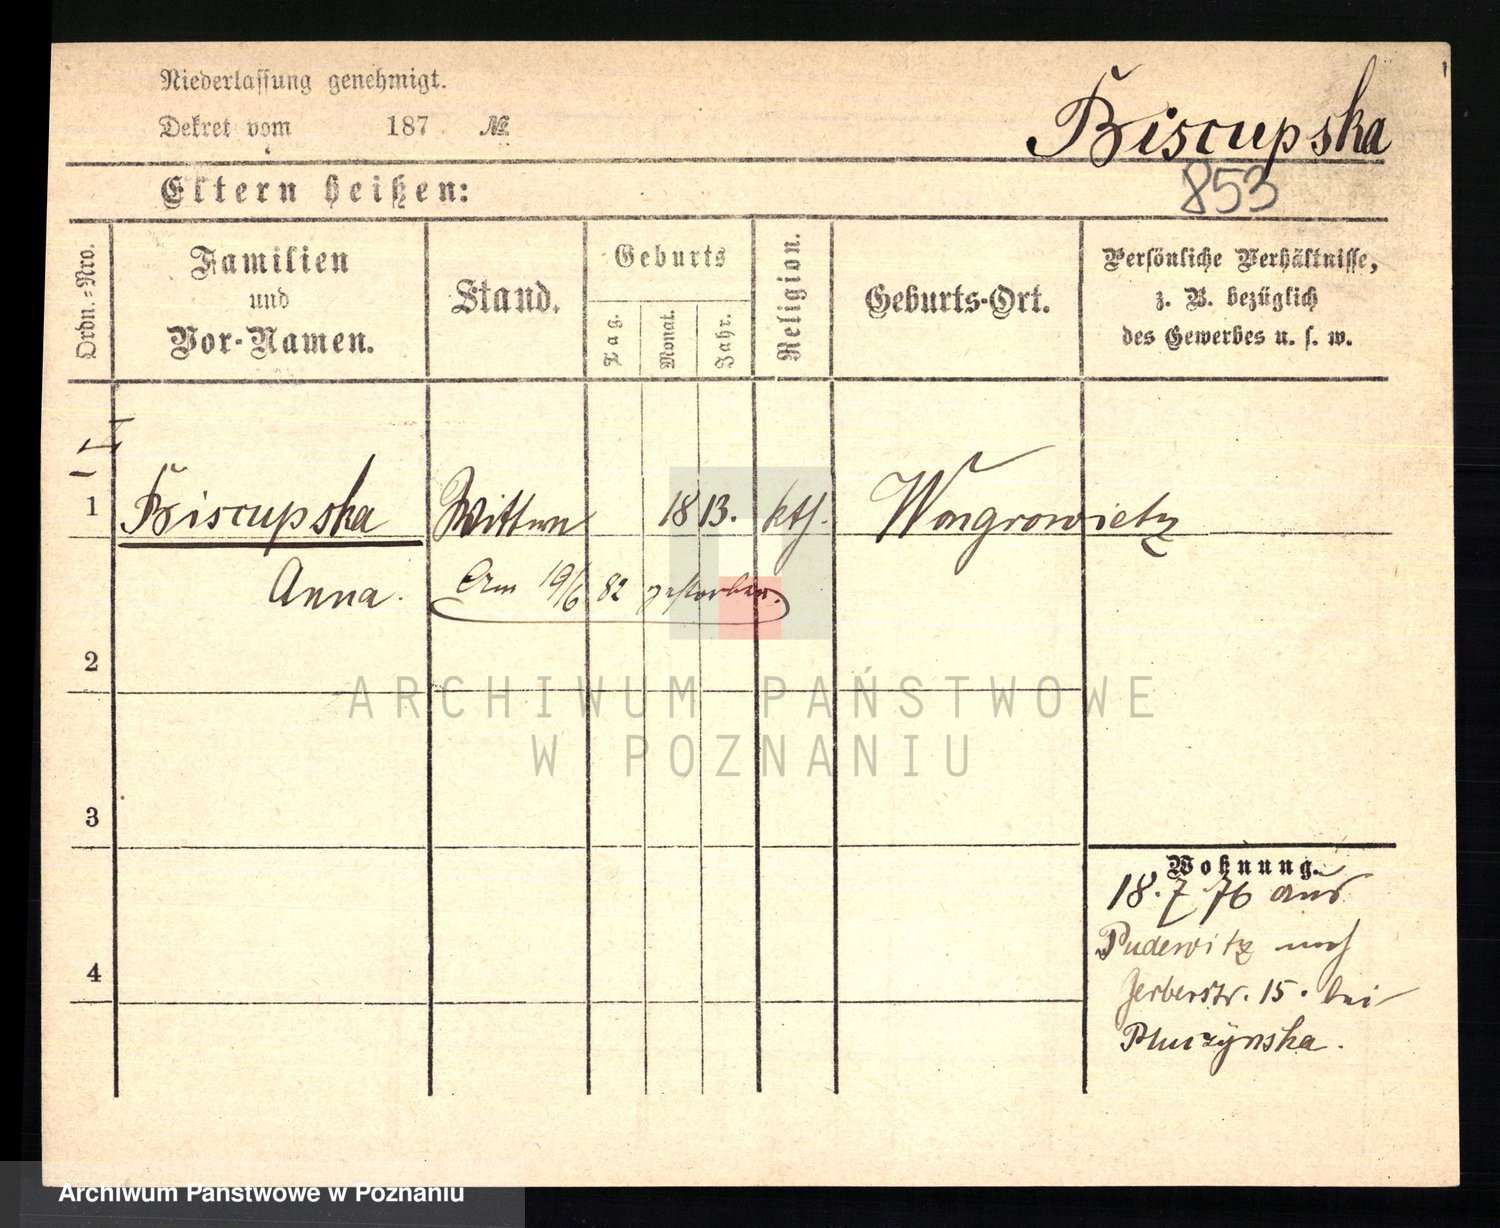 Niederlassung genehmigt.
Dekret vom 187 №
Biscupska
853
Eltern heißen:
Ordn.-Nro.
Familien
und
Vor-Namen.
Stand.
Geburts
Tag.
Monat.
Jahr.
Religion.
Geburts-Ort.
Persönliche Verhältnisse,
z. B. bezüglich
des Gewerbes u. s. w.
I
1 Biscupska Wittwe 1813. kth. Wongrowietz
Anna. Am 19/6 82 gestorben.
2
ARCHIWUM PAŃSTWOWE
W POZNANIU
3
Wohnung.
18.7 76 aus
Pudewitz nach
4
Gerberstr. 15. bei
Archiwum Państwowe w Poznaniu